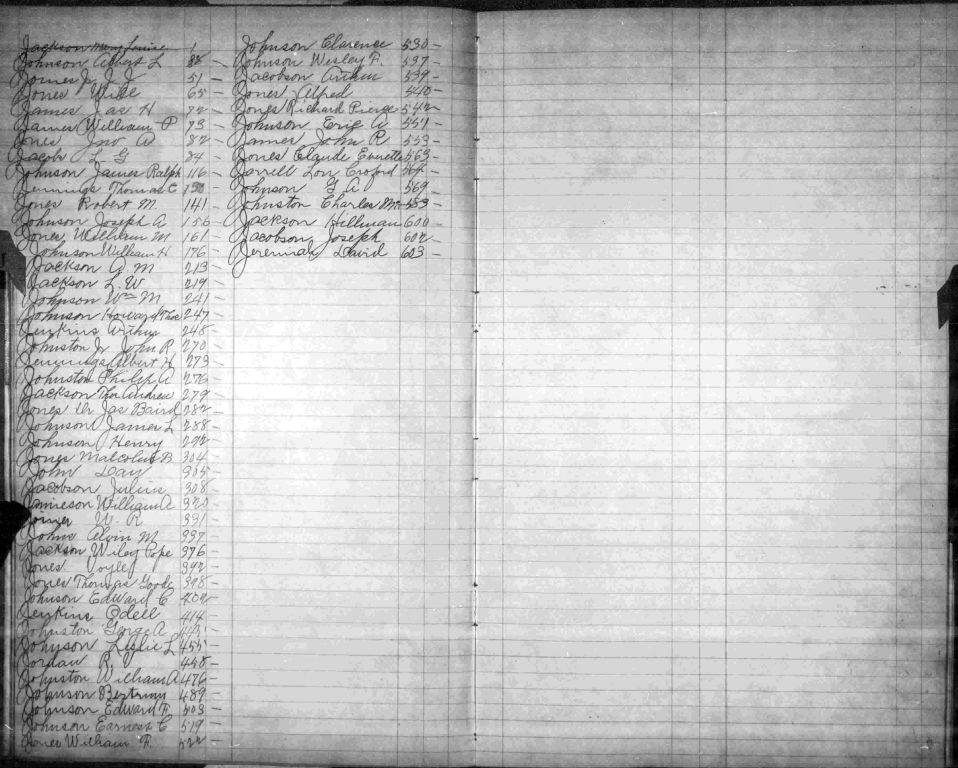 Jackson Mary Louise 1
Johnson Albert L 38 –
Jones Jr J. J. 51 –
Jones Will 65 –
James Jas H 72 –
James William P 73 –
Jones Jno A 82 –
Jacob L G 84 –
Johnson James Ralph 116 –
Jennings Thomas C 130 –
Jones Robert M. 141 –
Johnson Joseph A 156 –
Jones William M 161 –
Johnson William H 176 –
Jackson A M 213 –
Jackson L. W 219 –
Johnson Wm M 241 –
Johnson Howard Thos 247 –
Jenkins Arthur 248 –
Johnston Jr John R 270 –
Jennings Albert H 273 –
Johnston Philip A 276 –
Jackson Thos Andrew 279 –
Jones Dr Jas Baird 282 –
Johnson James L 288 –
Johnson Henry 292 –
Jones Malcolm B 304 –
John Day 305 –
Jacobson Julius 308 –
Jamieson William A 320 –
W. R 331 –
Johns Alvin M 337 –
Jackson Wiley Pope 376 –
Jones 392 –
Jones Thomas Goode 398 –
Johnson Edward C 402 –
Jenkins Odell 414 –
Johnston George A
Johnson Leslie L 455
Jordan R. 458 –
Johnston William A 476 –
Johnson Bertram 489 –
Johnson Edward F. 503 –
Johnson Earnest C 519 –
Jones William F. 522 –
Johnson Clarence 530 –
Johnson Wesley F. 537 –
Jacobson 539 –
Jones Alfred 540 –
Jones Richard Pierce 542 –
Johnson Eric A 551 –
James John R 553 –
Jones Claude Everette 563 –
Jarrell Lon Croford 564 –
Johnson G A 569 –
Johnston Charles Mc 583 –
Jackson Hillman 600 –
Jacobson Joseph 602 –
Jeremiah David 603 –